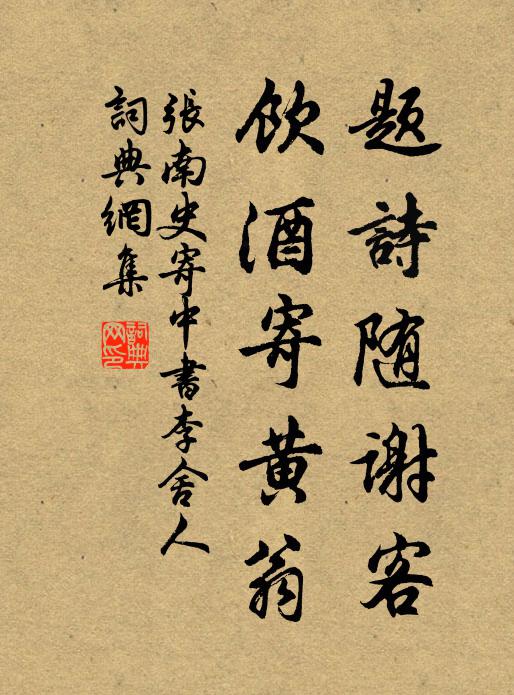 題詩随謝客
飲酒寄黄翁
張南史寄中書李舍人
詞典網集
詞典网印